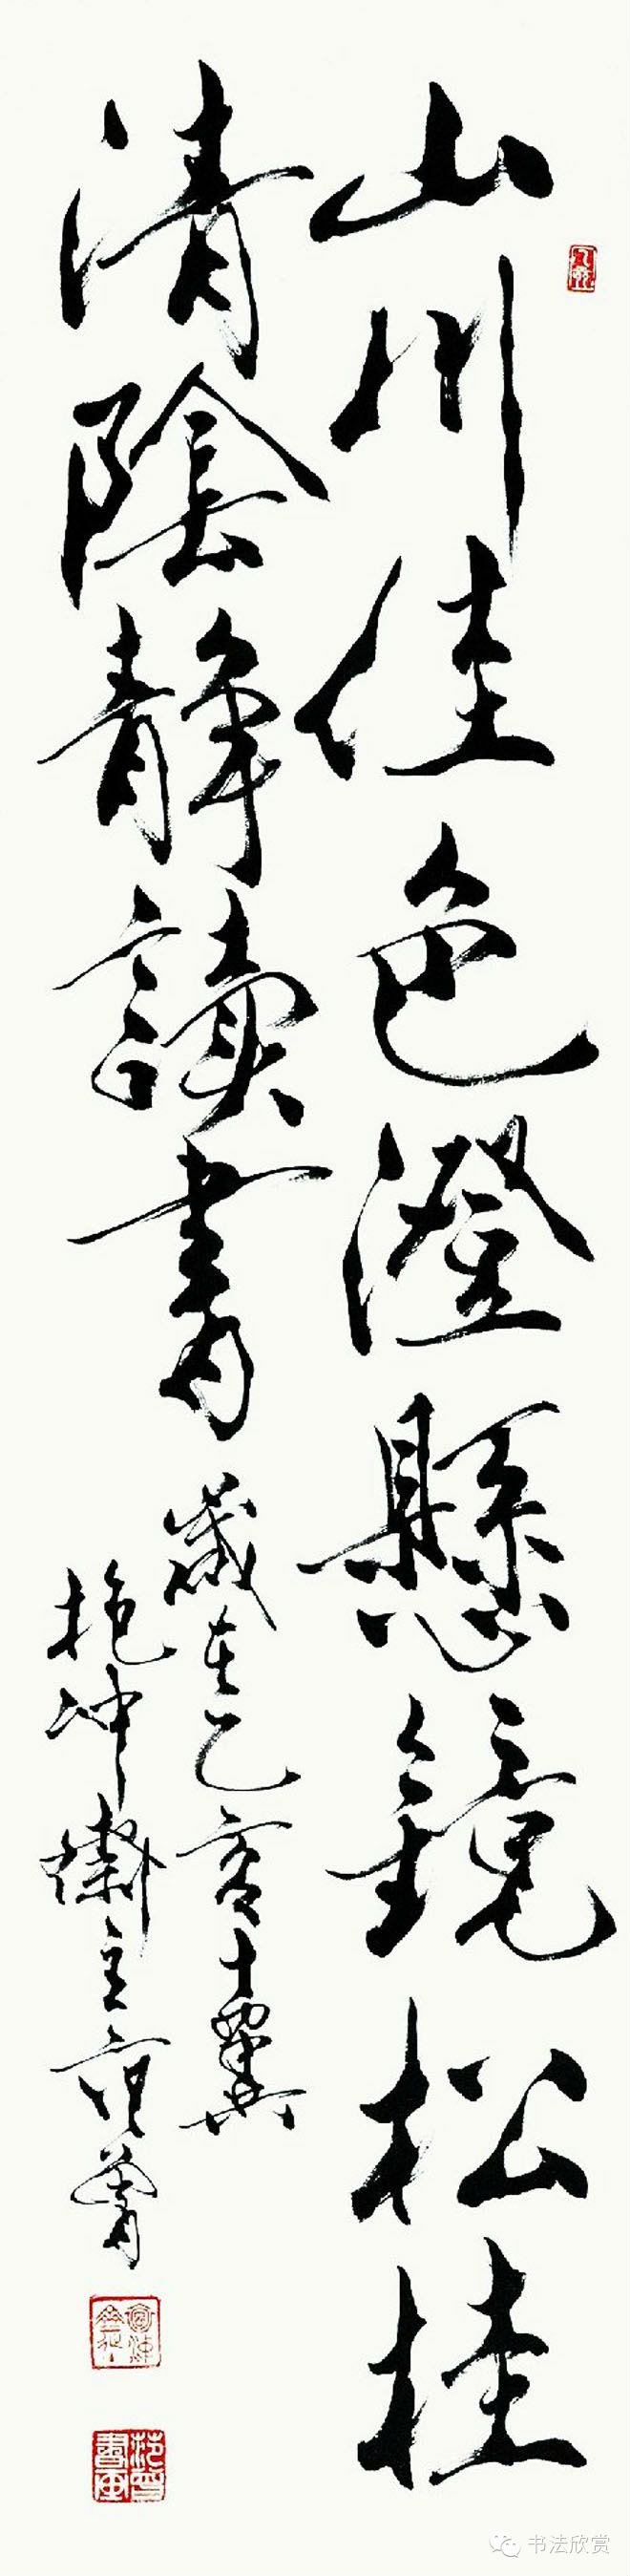 山川佳色澄懸鏡松桂
清陰靜讀書
歲在乙亥十翼
抱冲齋主范曾
书法欣赏